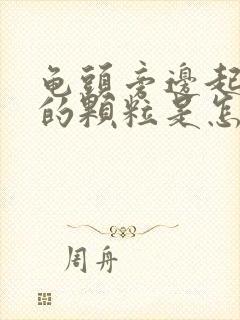 龟頭旁邊起
的顆粒是怎
周舟